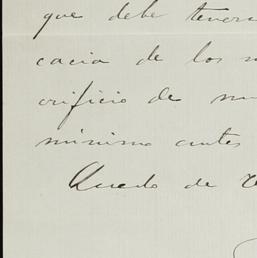 que debe tener
cacia de los
orificio de
minimo antes
Quedo de